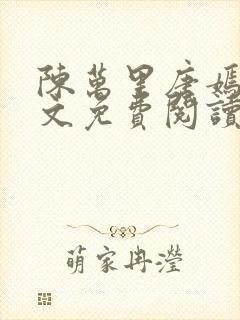 陳萬里唐嫣
文免費閱讀
萌家冉瀅